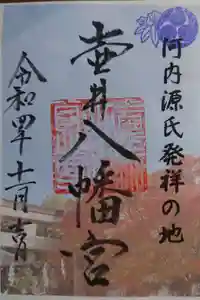 河内源氏発祥の地
壷井八幡宮
令和四年十一月